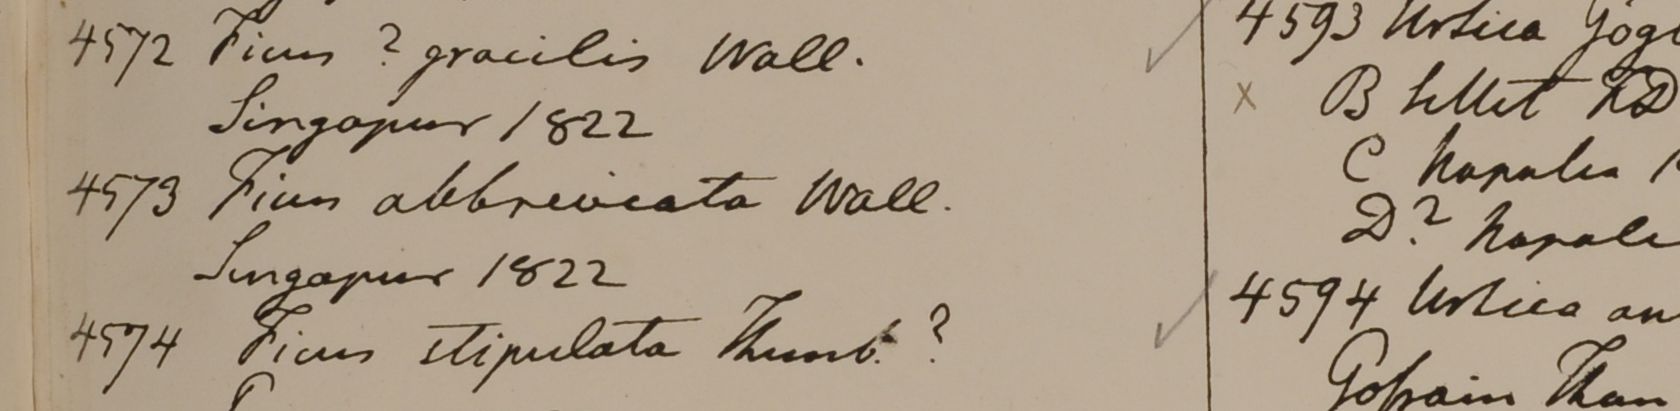 4572 Ficus ? gracilis Wall.
Singapur 1822
4573 Ficus abbreviata Wall.
Singapur 1822
4574 Ficus stipulata Thunb. ?
4593 Urtica
B Sillet HD
C Napalia
D? Napale
4594 Urtica an
Gossain Than